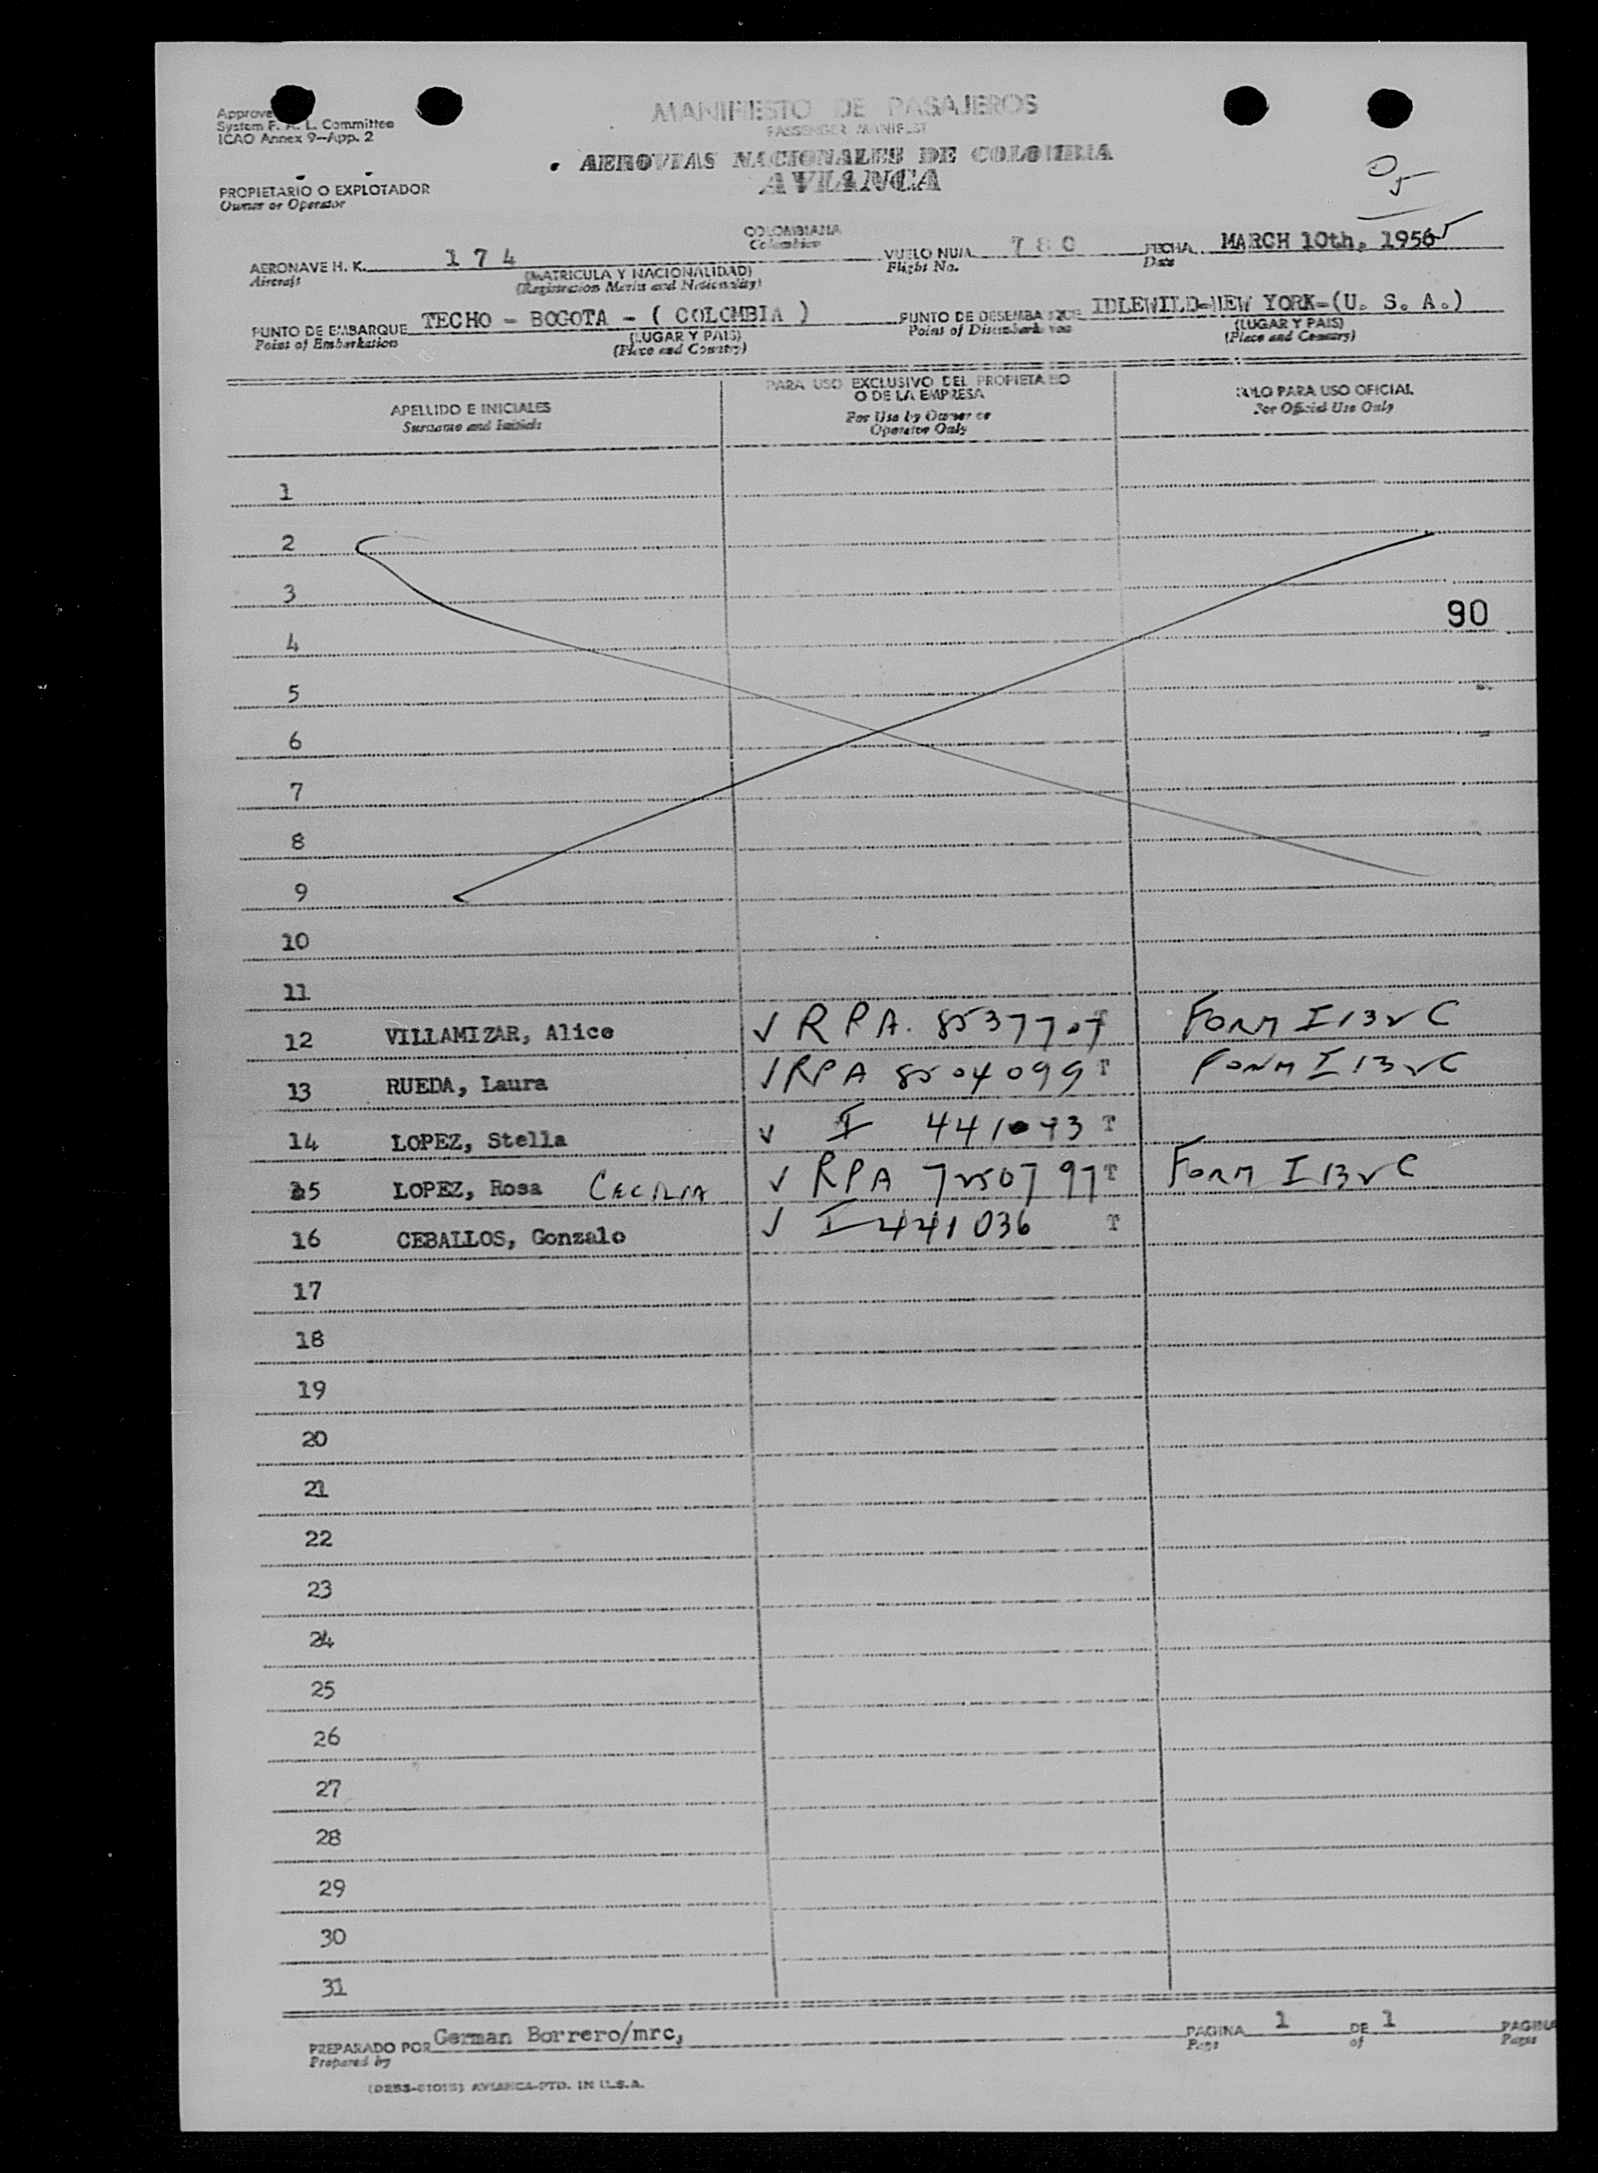 Approve
System F. A. L. Committee
ICAO Annex 9--App. 2
MANIFIESTO DE PASAJEROS
PASSENGER MANIFEST
AEROVIAS NACIONALES DE COLOMBIA
AVIANCA
05
PROPIETARIO O EXPLOTADOR
Owner or Operator
COLOMBIANA
Colombian
AERONAVE H. K. 174 VUELO NUM. 780 FECHA MARCH 10th, 1956
Aircraft (MATRICULA Y NACIONALIDAD) Flight No. Date
(Registration Marks and Nationality)
PUNTO DE EMBARQUE TECHO - BOGOTA - ( COLOMBIA ) PUNTO DE DESEMBARQUE IDLEWILD-NEW YORK-(U. S. A.)
Point of Embarkation (LUGAR Y PAIS) Point of Disembarkation (LUGAR Y PAIS)
(Place and Country) (Place and Country)
APELLIDO E INICIALES PARA USO EXCLUSIVO DEL PROPIETARIO O DE LA EMPRESA SOLO PARA USO OFICIAL
Surname and Initials For Use by Owner or Operator Only For Official Use Only
1
2
3
90
4
5
6
7
8
9
10
11
12 VILLAMIZAR, Alice √ RPA. 8537707 T FORM I 132 C
13 RUEDA, Laura √ RPA 8504099 T FORM I 132 C
14 LOPEZ, Stella √ I T
15 LOPEZ, Rosa CECILIA √ RPA 7250797 T FORM I 132 C
16 CEBALLOS, Gonzalo √ I 441036 T
17
18
19
20
21
22
23
24
25
26
27
28
29
30
31
PREPARADO POR German Borrero/mrc, PAGINA 1 DE 1 PAGINA
Prepared by Page of Pages
AVIANCA-PTD. IN U.S.A.